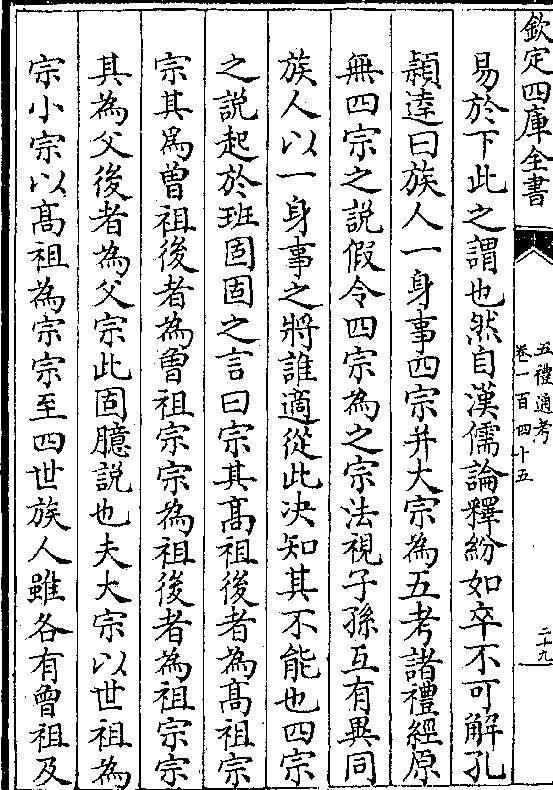 欽定四庫全書
五禮通考
卷一百四十五
二十九
易於下此之謂也然自漢儒論釋紛如卒不可解孔
穎逹曰族人一身事四宗并大宗為五考諸禮經原
無四宗之說假令四宗為之宗法視子孫互有異同
族人以一身事之將誰適從此决知其不能也四宗
之說起於班固固之言曰宗其髙祖後者為髙祖宗
宗其爲曾祖後者為曾祖宗宗為祖後者為祖宗宗
其為父後者為父宗此固臆說也夫大宗以世祖為
宗小宗以髙祖為宗宗至四世族人雖各有曾祖及